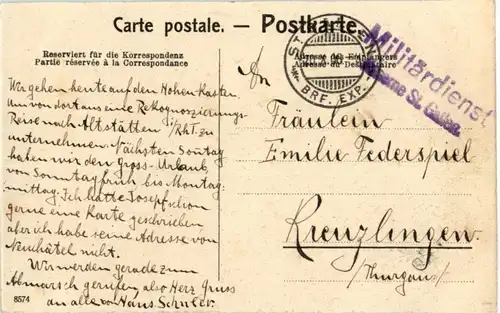 Carte postale. — Postkarte.
Reserviert für die Korrespondenz
Partie réservée à la Correspondance
Adresse des Empfängers
Adresse du Destinataire
BRF. EXP.
Militärdienst
St. Gallen.
Wir gehen heute auf den Hohen Kasten
um von dort aus eine Rekognoszierungs-
Reise nach Altstätten i/Rht. zu
unternehmen. Nächsten Sontag
haben wir den gross-Urlaub,
von Sonntag früh bis Montag-
mittag. Ich hätte Josef schon
gerne eine Karte geschrieben
aber ich habe seine Adresse von
Neuhâtel nicht.
Wir werden gerade zum
Abmarsch gerufen, also Herz. Gruss
an alle von Hans Schuler.
An
Fräulein
Emilie Federspiel
Kreuzlingen.
Thurgau
8574